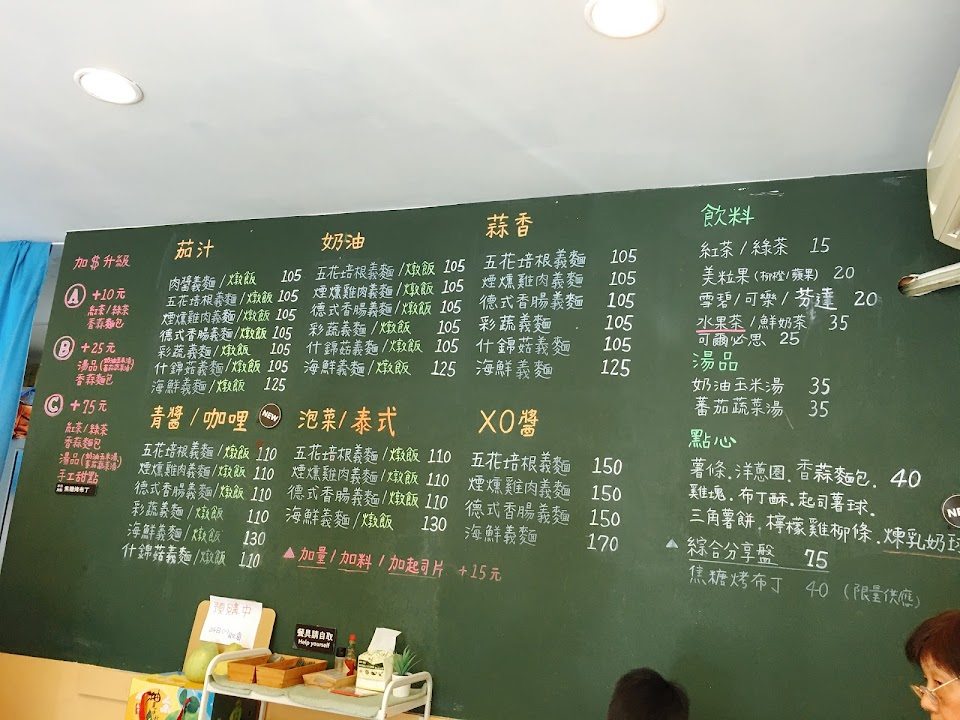 加$升級
Ⓐ +10元
紅茶/綠茶
香蒜麵包
Ⓑ +25元
湯品(奶油玉米湯/蕃茄蔬菜湯)
香蒜麵包
Ⓒ +75元
紅茶/綠茶
香蒜麵包
湯品(奶油玉米湯/蕃茄蔬菜湯)
手工甜點
焦糖烤布丁
茄汁
肉醬義麵/燉飯 105
五花培根義麵/燉飯 105
煙燻雞肉義麵/燉飯 105
德式香腸義麵/燉飯 105
彩蔬義麵/燉飯 105
什錦菇義麵/燉飯 105
海鮮義麵/燉飯 125
奶油
五花培根義麵/燉飯 105
煙燻雞肉義麵/燉飯 105
德式香腸義麵/燉飯 105
彩蔬義麵/燉飯 105
什錦菇義麵/燉飯 105
海鮮義麵/燉飯 125
蒜香
五花培根義麵 105
煙燻雞肉義麵 105
德式香腸義麵 105
彩蔬義麵 105
什錦菇義麵 105
海鮮義麵 125
青醬/咖哩 NEW
五花培根義麵/燉飯 110
煙燻雞肉義麵/燉飯 110
德式香腸義麵/燉飯 110
彩蔬義麵/燉飯 110
海鮮義麵/燉飯 130
什錦菇義麵/燉飯 110
泡菜/泰式
五花培根義麵/燉飯 110
煙燻雞肉義麵/燉飯 110
德式香腸義麵/燉飯 110
海鮮義麵/燉飯 130
▲加量/加料/加起司片 +15元
XO醬
五花培根義麵 150
煙燻雞肉義麵 150
德式香腸義麵 150
海鮮義麵 170
飲料
紅茶/綠茶 15
美粒果(柳橙/蘋果) 20
雪碧/可樂/芬達 20
水果茶/鮮奶茶 35
可爾必思 25
湯品
奶油玉米湯 35
蕃茄蔬菜湯 35
點心
薯條.洋蔥圈.香蒜麵包. 40
雞塊.布丁酥.起司薯球.
三角薯餅.檸檬雞柳條.煉乳奶球
▲綜合分享盤 75
焦糖烤布丁 40 (限量供應)
預購中
餐具請自取
Help yourself